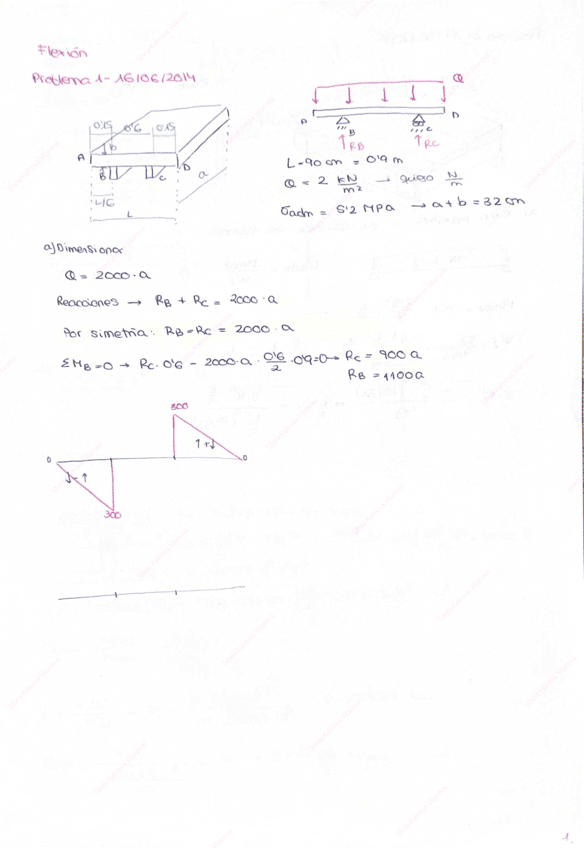 Flexión
Problema 1 - 16/06/2014
0'15 0'6 0'15
b
A
B
C
D
a
L/6
L
Q
A
B
C
D
RB
RC
L = 90 cm = 0'9 m
Q = 2 kN/m² → quiero N/m
σadm = 5'2 MPa → a + b = 32 cm
a) Dimensionar
Q = 2000 · a
Reacciones → RB + RC = 2000 · a
Por simetría: RB = RC = 2000 · a
ΣMB = 0 → RC · 0'6 - 2000 · a · 0'6/2 · 0'9 = 0 → RC = 900 a
RB = 1100 a
300
0
↓ - ↑
↑ + ↓
0
300
1